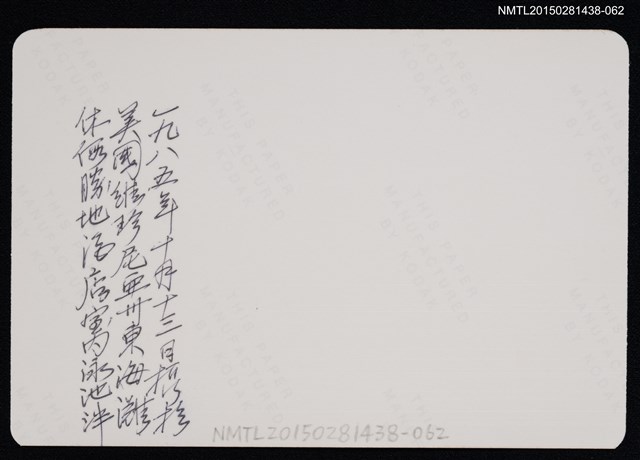 NMTL20150281438-062
一九八五年十月十三日攝於
美國維珍尼亜州東海灘
休假勝地酒店室內泳池泮
THIS PAPER
MANUFACTURED
BY KODAK
NMTL20150281438-062